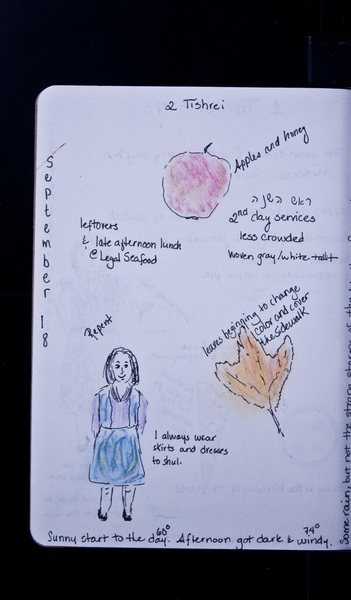 2 Tishrei
September 18
Apples and honey
ראש השנה
2nd day services
less crowded
Woven gray/white tallit
leftovers
& late afternoon lunch
@ Legal Seafood
leaves beginning to change
color and cover
the sidewalk
Repent
I always wear
skirts and dresses
to shul.
60°
74°
Sunny start to the day. Afternoon got dark & windy.
Some rain, but not the strong